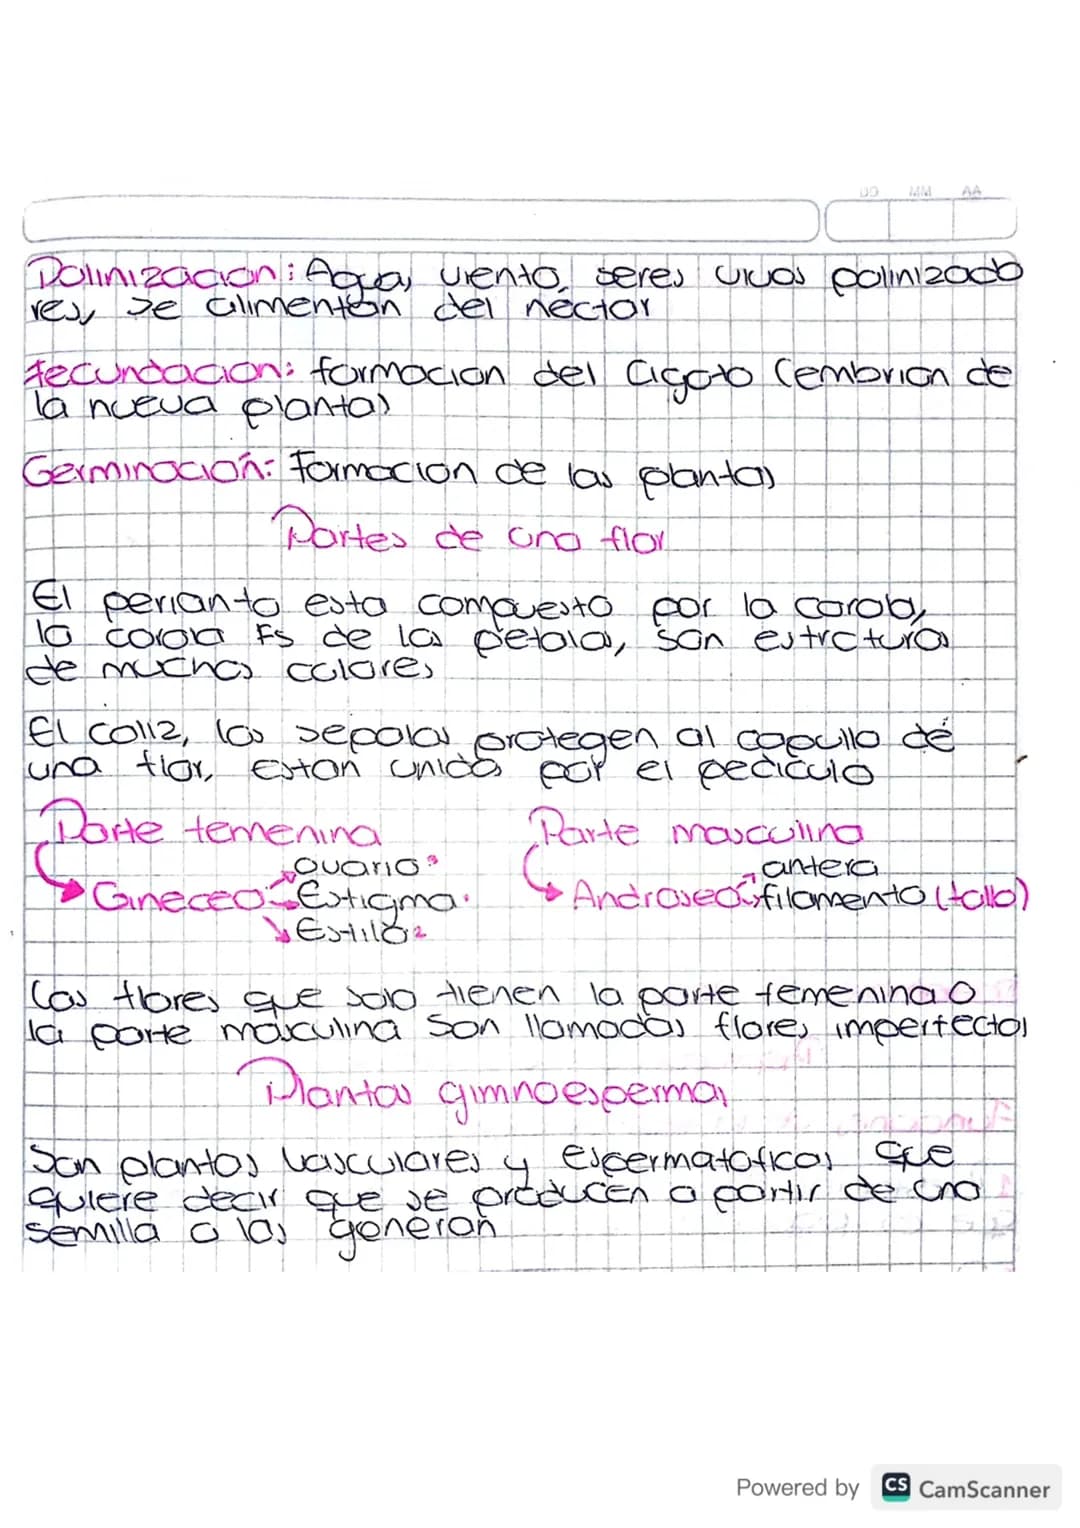 DD MM AA
Polinización: Agua, viento, seres vivos polinizado
res, se alimentan del néctor
Fecundacion: formacion del cigoto (embrion de
la nueva planta)
Germinación: Formacion de las plantas
Partes de una flor
El perianto esta compuesto por la corola,
la corola Es de las petalas, son estrcturas
de muchos colores
El caliz, los sepalos protegen al capullo de
una flor, estan unidos por el pediculo
Parte femenina Parte masculina
ovario antera
Gineceo Estigma Androseo filamento (tallo)
Estilo
Las flores que solo tienen la parte femenina o
la parte masculina son llamadas flores imperfectas
Plantas gimnoespermas
Son plantas vasculares y espermatoficas que
quiere decir que se producen a partir de una
semilla o las generan
Powered by CS CamScanner